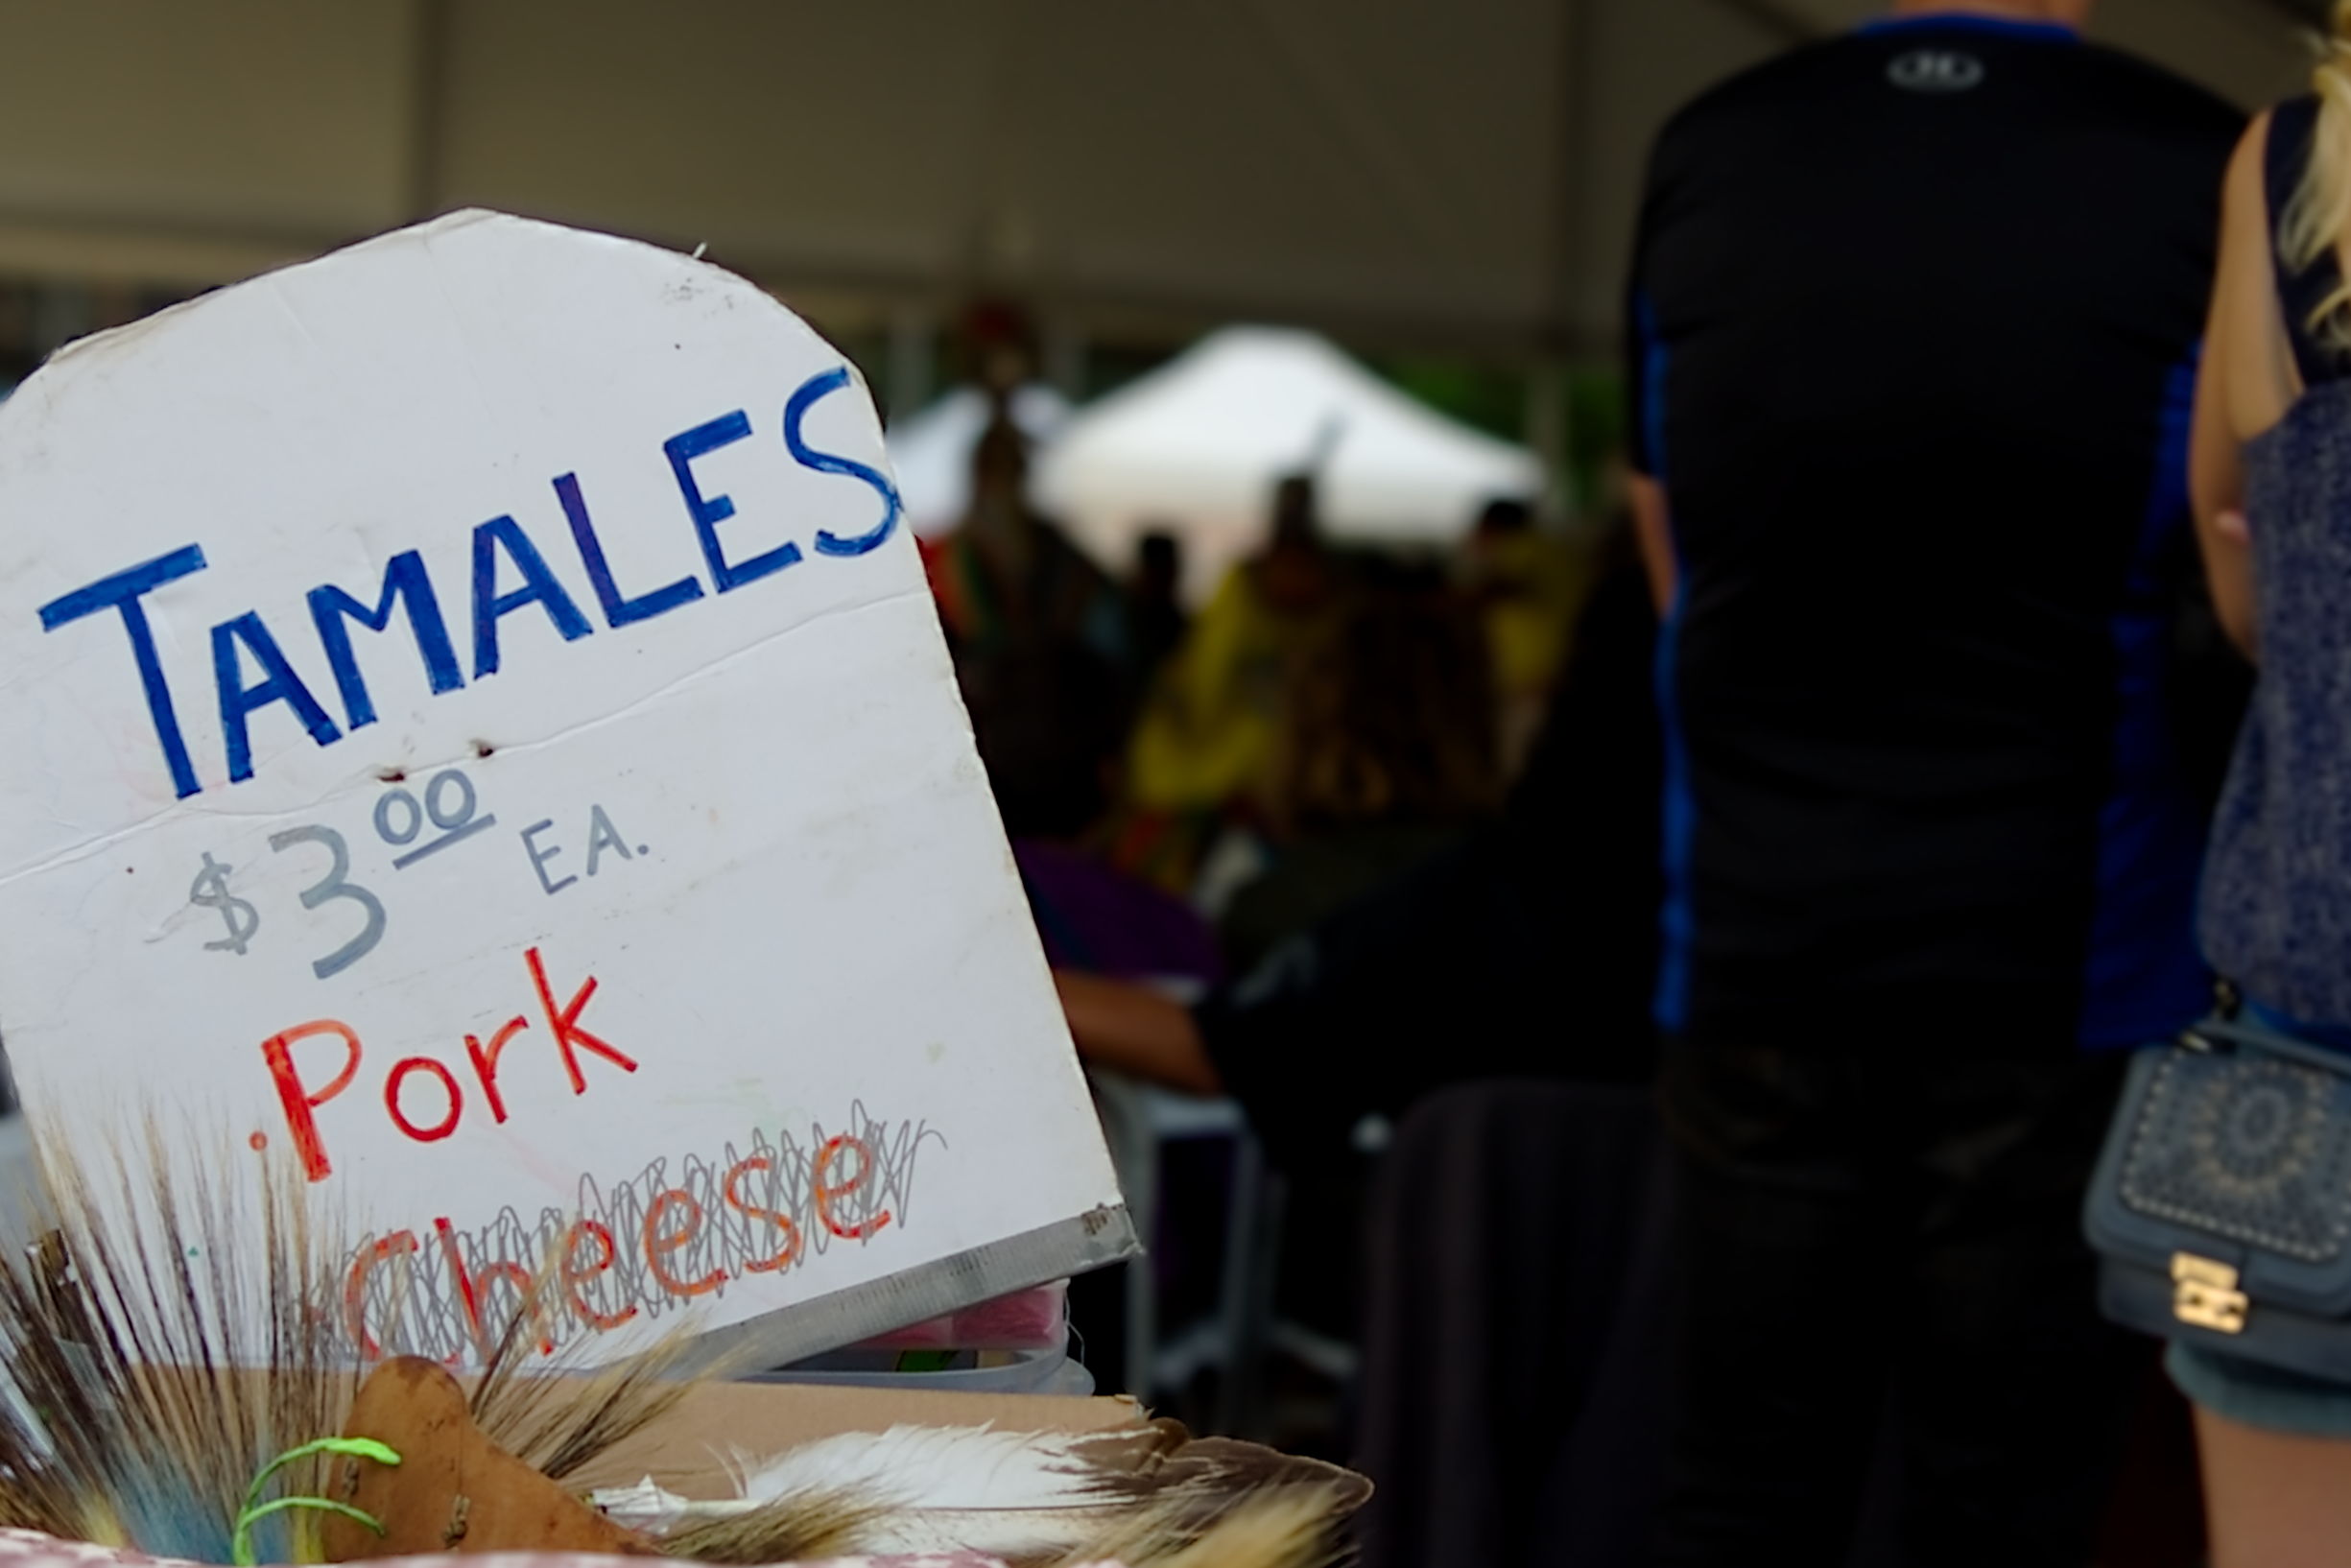 TAMALES
$3.00 EA.
.Pork
Cheese